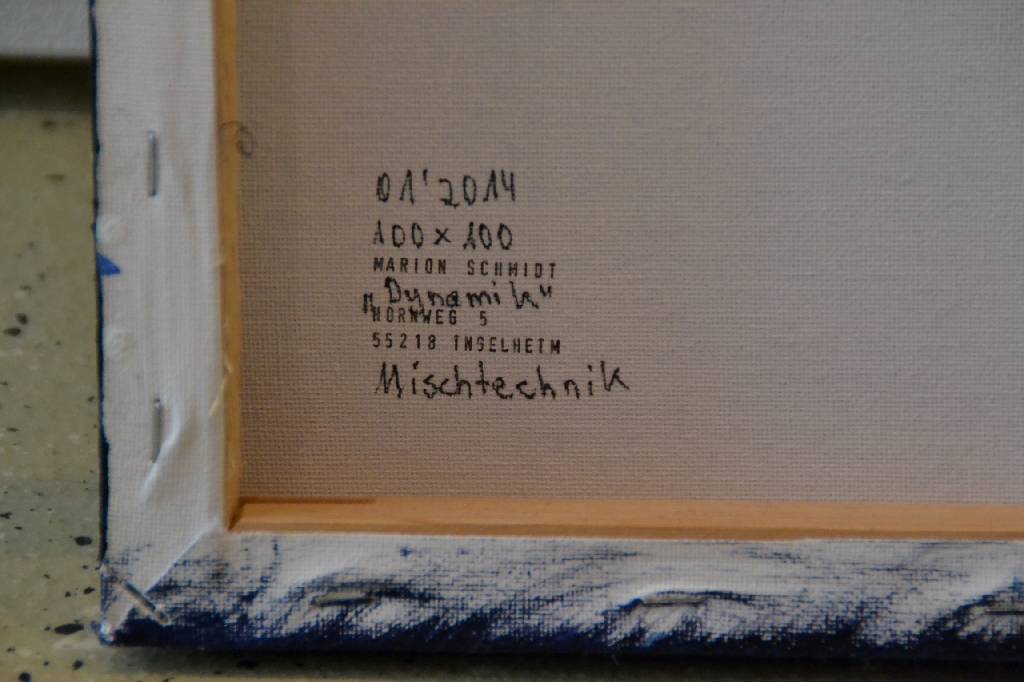 01'2014
100 x 100
MARION SCHMIDT
„Dynamik"
HORNWEG 5
55218 INGELHEIM
Mischtechnik